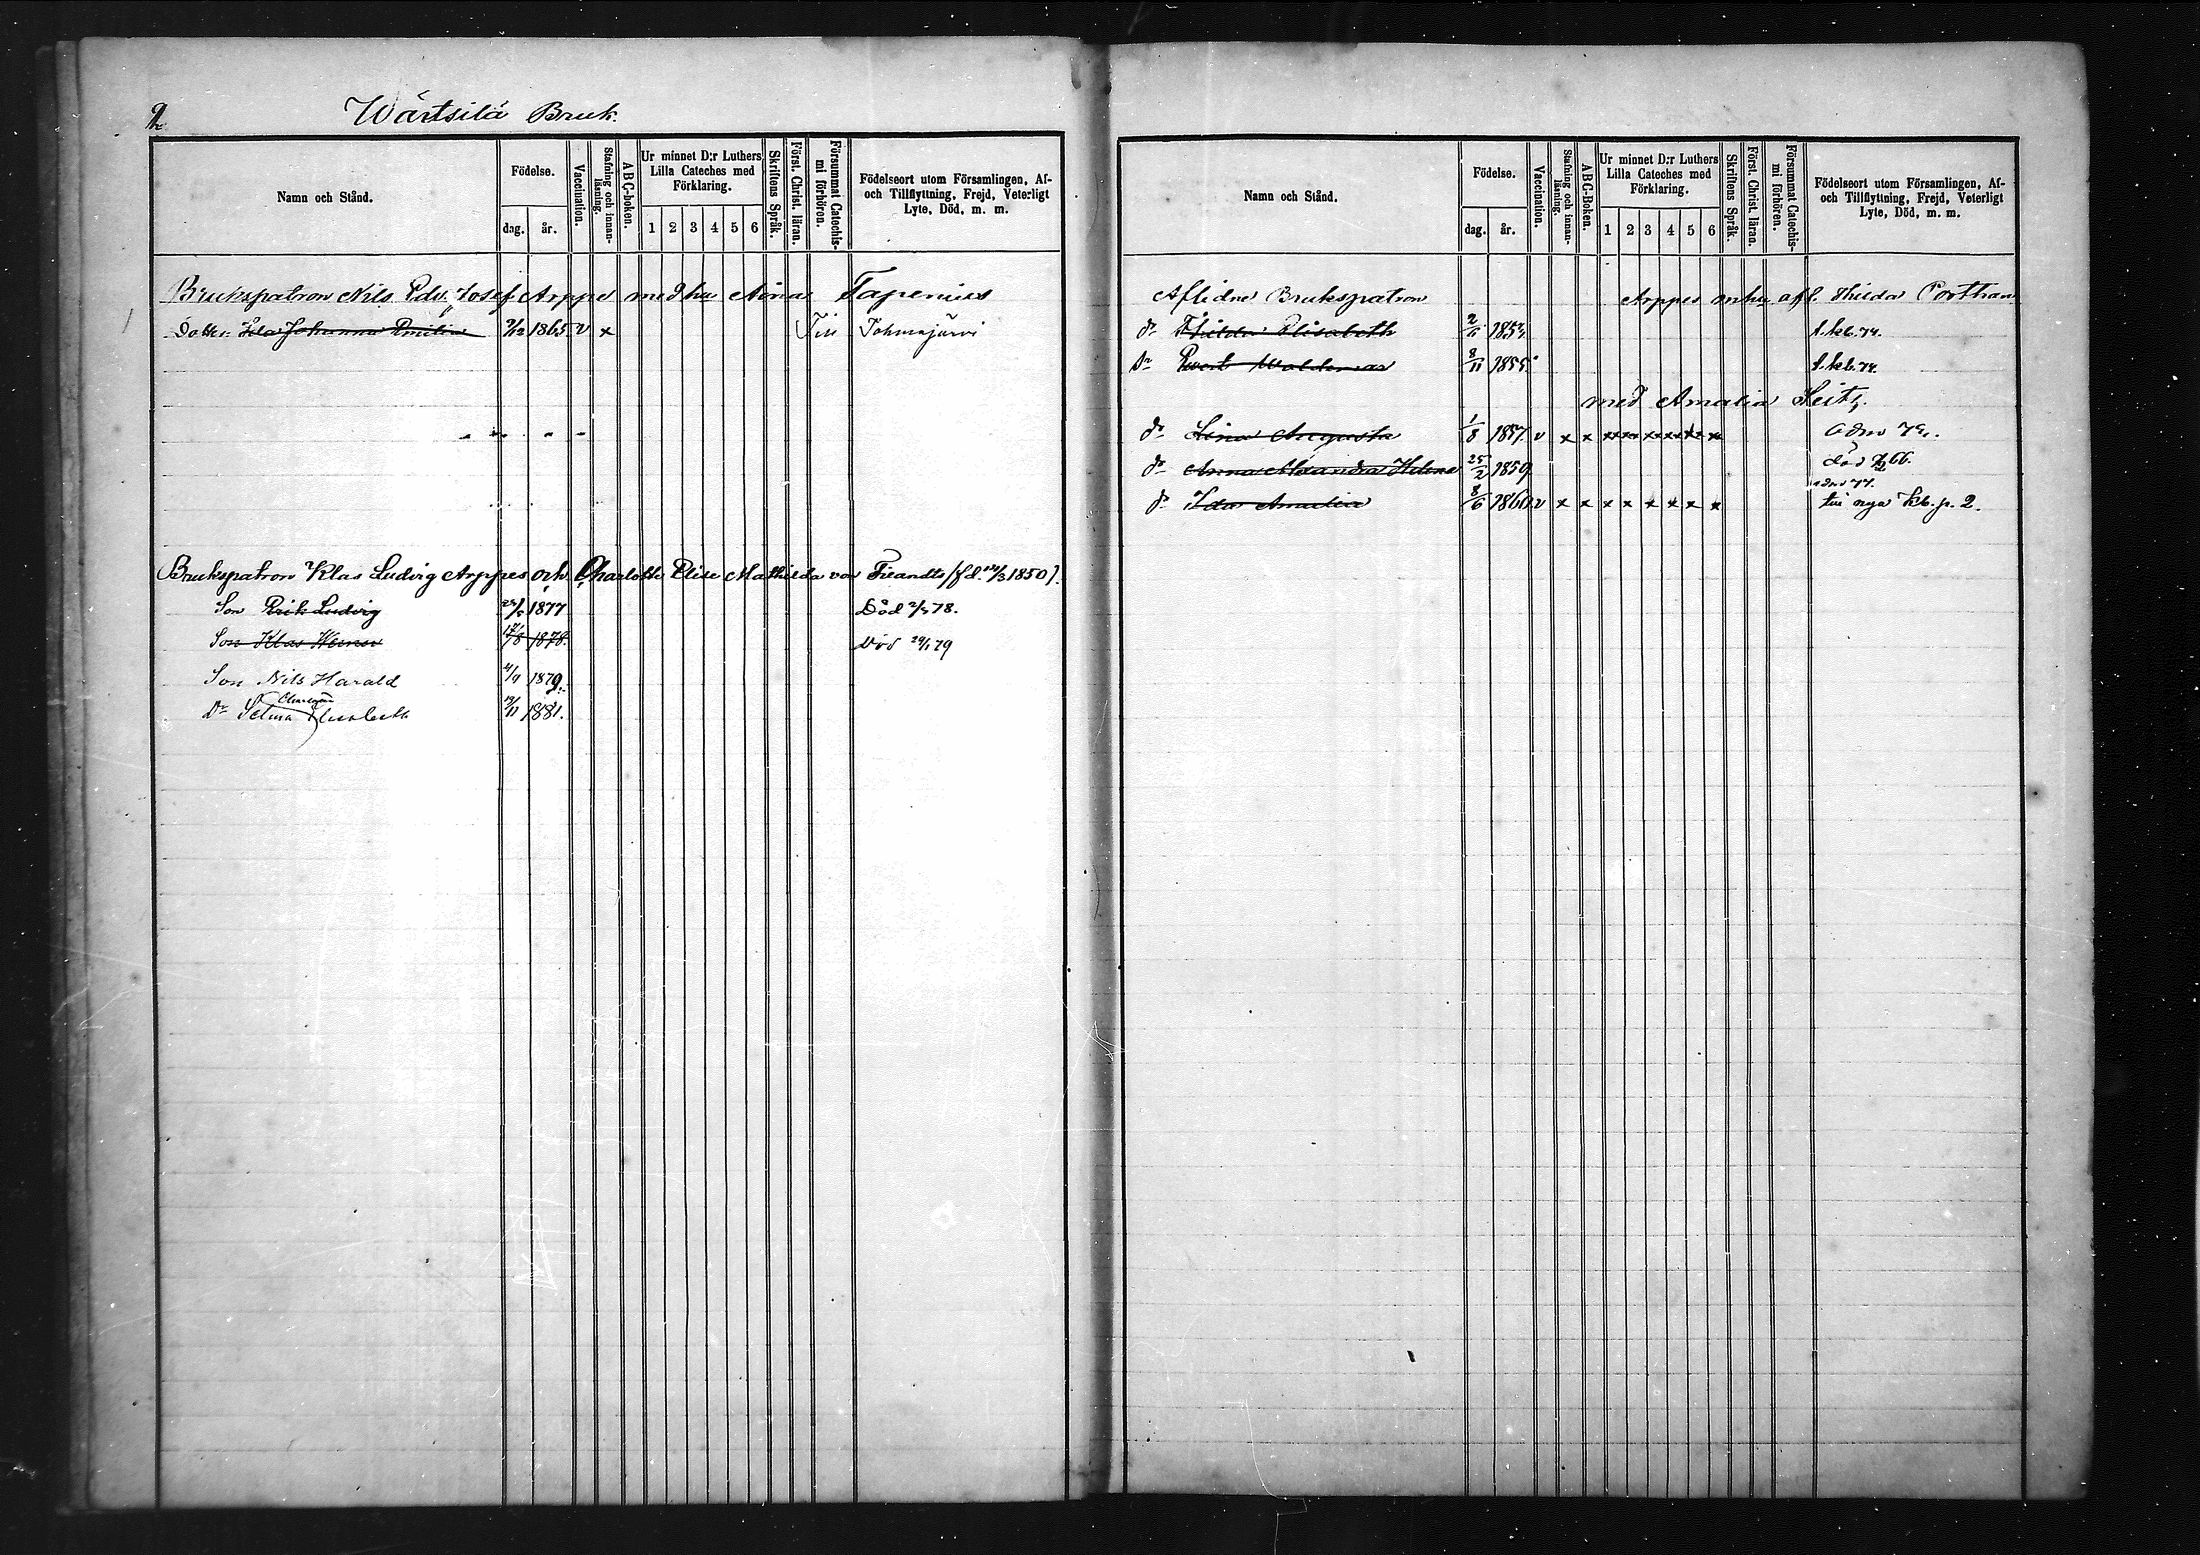 2
Wärtsilä Bruk.
Namn och Stånd.
Födelse.
dag.
år.
Vaccination.
Stafning och innanläsning.
ABC-boken.
Ur minnet D:r Luthers Lilla Cateches med Förklaring.
1 2 3 4 5 6
Skriftens Språk.
Först. Christ. läran.
Försummat Catechismi förhören.
Födelseort utom Församlingen, Af- och Tillflyttning, Frejd, Veterligt Lyte, Död, m. m.
Brukspatron Nils Edv. Josef Arppe med hu Aina Tapenius
Dotter Ida Johanna Emilia 1865 v x Till Tohmajärvi
Brukspatron Klas Ludvig Arppes och Charlotte Elise Mathilda von Fieandts (fd. 1850).
Son Erik Ludvig 1877 Död 78.
Son Klas Werner 1878. Död 29/1 79
Son Nils Harald 4/9 1879.
Charlotta
Dr Selma Elisabeth 1881.
Namn och Stånd.
Födelse.
dag.
år.
Vaccination.
Stafning och innanläsning.
ABC-Boken.
Ur minnet D:r Luthers Lilla Cateches med Förklaring.
1 2 3 4 5 6
Skriftens Språk.
Först. Christ. läran.
Försummat Catechismi förhören.
Födelseort utom Församlingen, Af- och Tillflyttning, Frejd, Veterligt Lyte, Död, m. m.
Aflidne Brukspatron Arppes m hu afl. Hilda Porthan
dr Hilda Elisabeth
Sn Evert Waldemar 8/11 1855
med Amalia Seitz.
dr Lina Augusta 1/8 1857. v x x x x x x x x
dr Anna Alexandra Helena 25/2 1859 död 66.
dr Ida Amalia 8/6 1860 v x x x x x x x x till nya kb. p. 2.